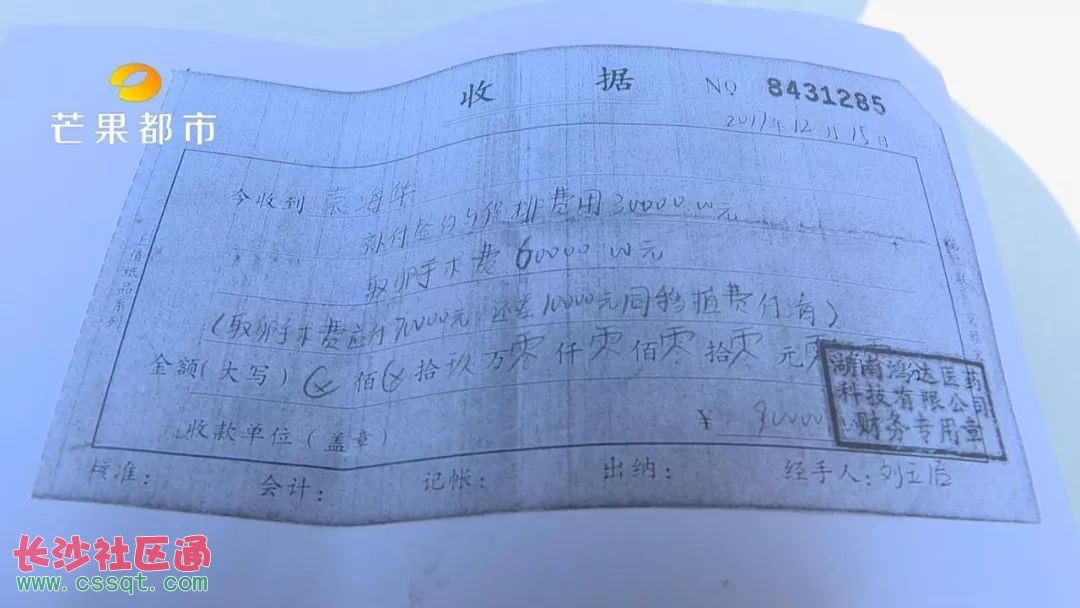 芒果都市
收 据 NO 8431285
2017年12月15日
今收到
补付签约与安排费用30000.00元
取卵手术费60000.00元
(取卵手术费应付70000元 还差10000元同移植费付清)
金额(大写) ⊗ 佰 ⊗ 拾玖万零仟零佰零拾零元零
收款单位(盖章) ¥ 90000
湖南鸿达医药
科技有限公司
财务专用章
核准: 会计: 记帐: 出纳: 经手人:
纸品系列
长沙社区通
www.cssqt.com